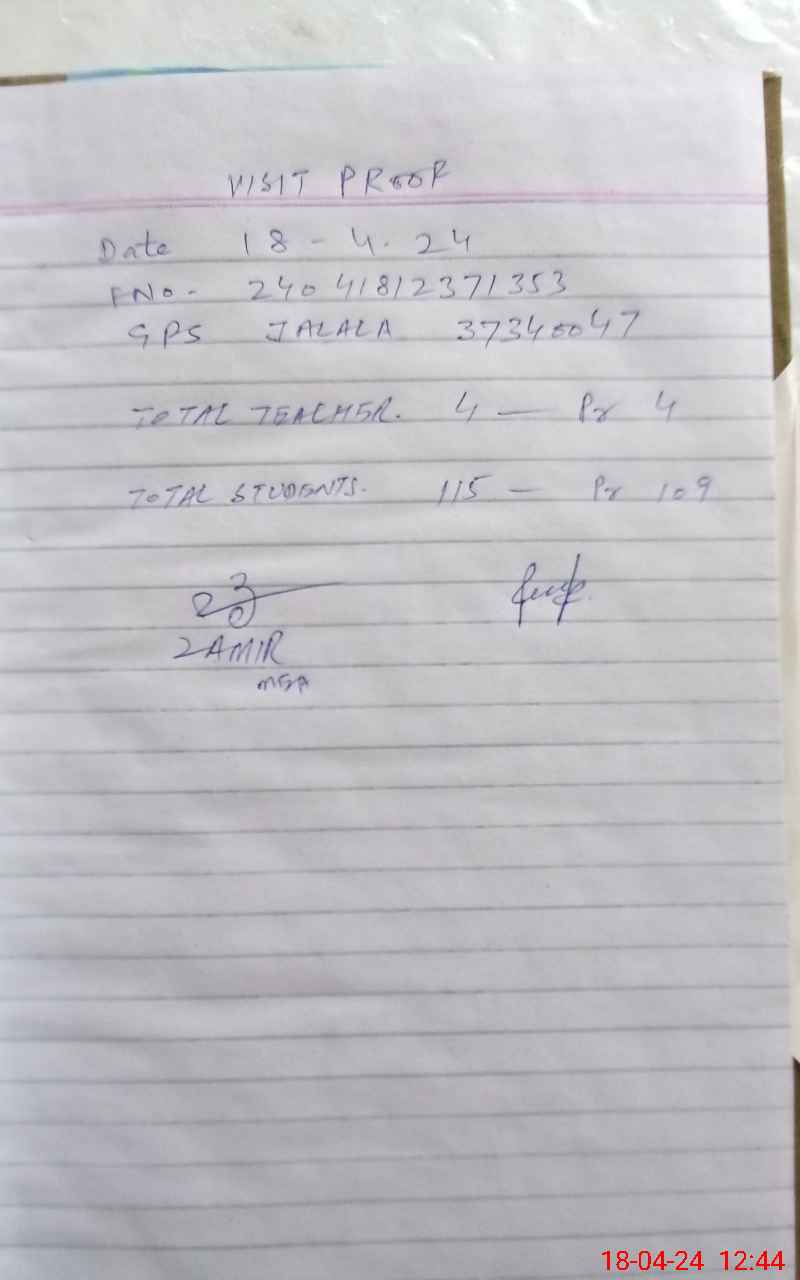 VISIT PROOF
Date 18-4.24
FNo- 24041812371353
GPS JALALA 37340047
TOTAL TEACHER. 4 — Pr 4
TOTAL STUDENTS. 115 — Pr 109
ZAMIR
MEA
18-04-24 12:44